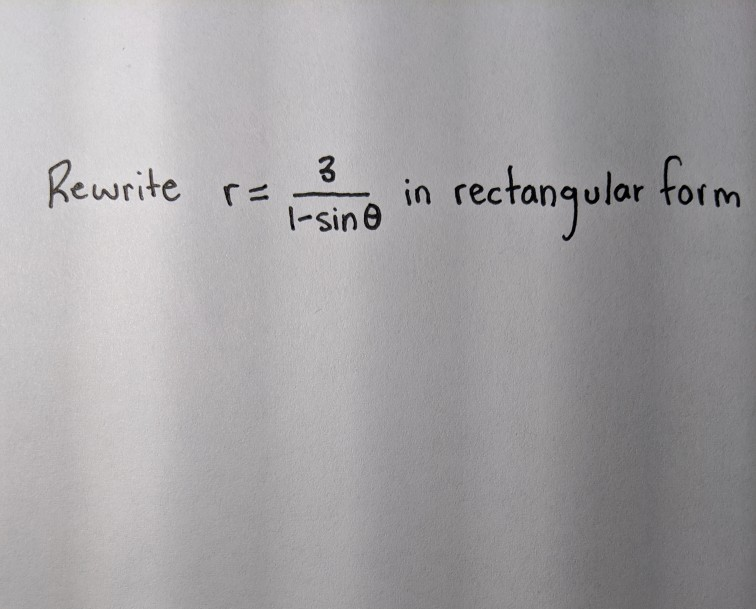 Rewrite r = 3/(1-sinθ) in rectangular form